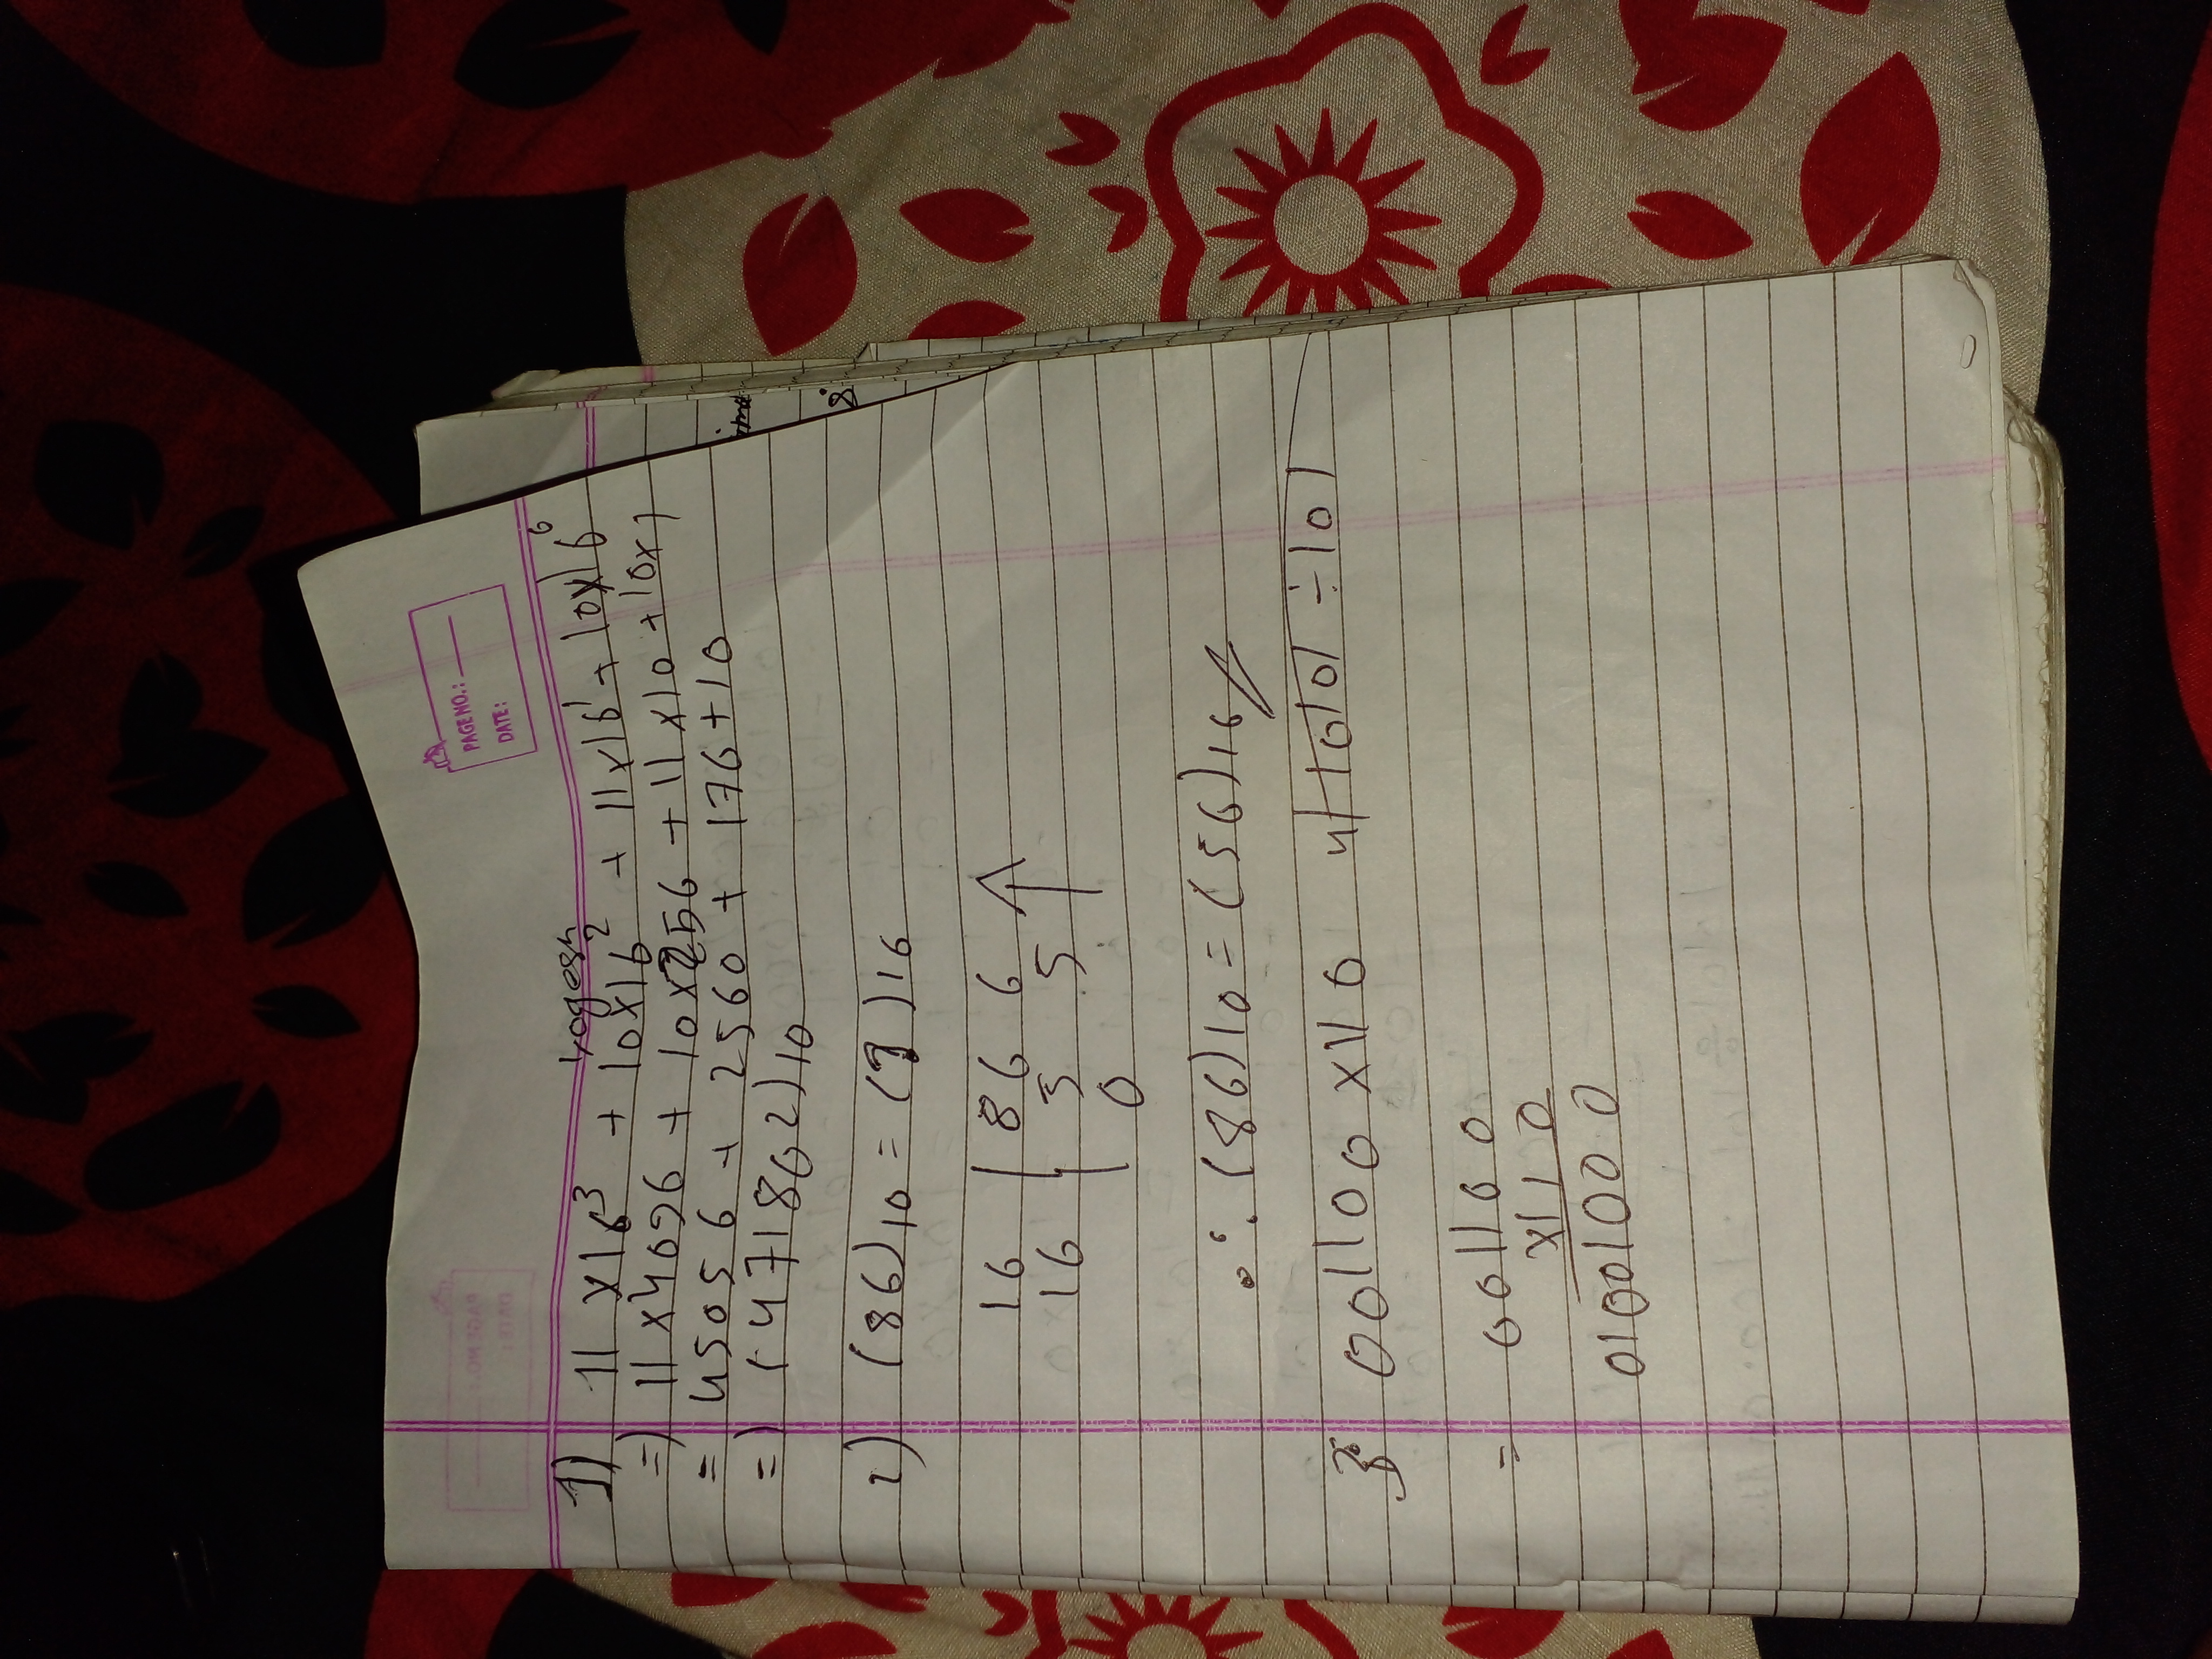 PAGE NO.:
DATE:
yogesh
1) 11 x16³ + 10x16² + 11x16¹ + 10x16⁰
=) 11 x4096 + 10x256 + 11x10 + 10x1
= 45056 + 2560 + 176+10
=) (471802)10
2) (86)10 = (?)16
16 | 86 6
16 | 5 5
0
∴ (86)10 = (56)16
3 001100 x110 4) 10101 ÷ 101
= 001100
x110
01001000